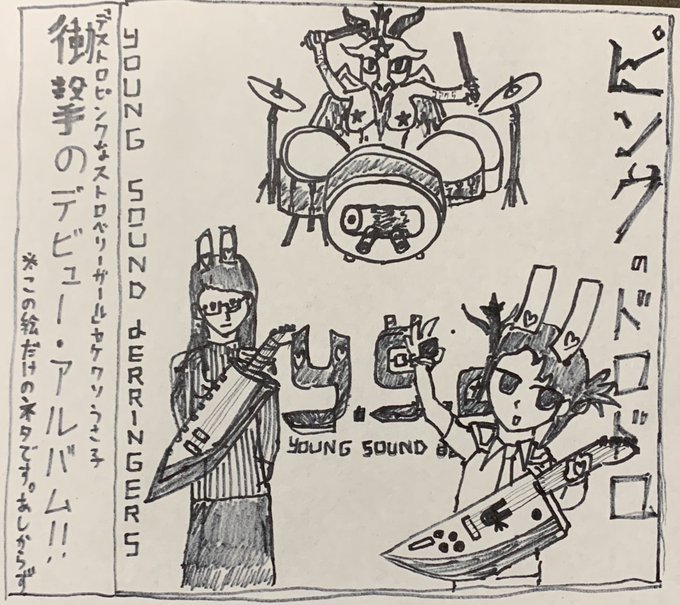 ピンウのドロドロ
Y.S.
YOUNG SOUND
YOUNG SOUND dERRINGERS
デストロピンクなストロベリーガールカケクソうさ子
衝撃のデビュー・アルバム!!
※この絵だけのネタです。あしからず